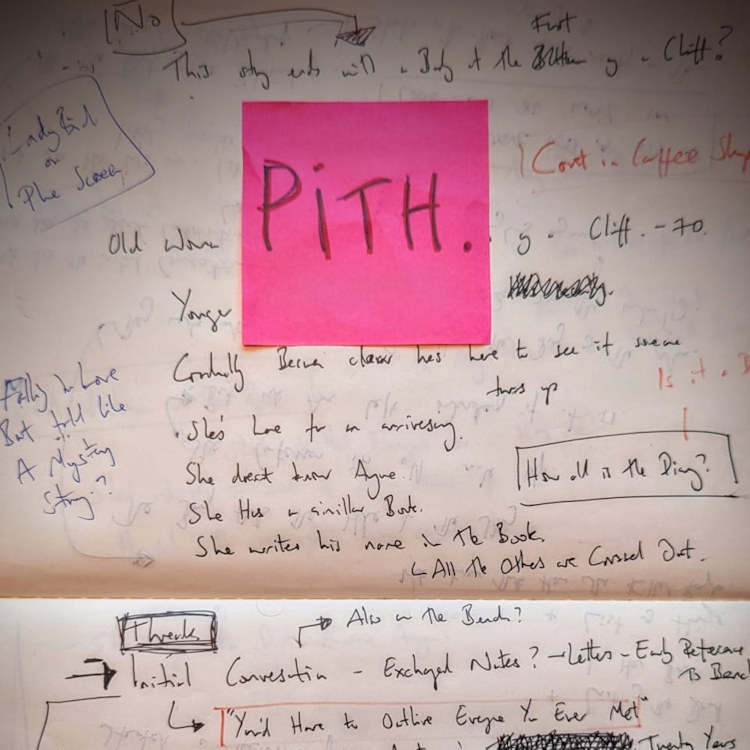 No
This story ends with a Body at the Foot of a Cliff?
Lady Bird
or
Phone Screen
PiTH.
1 Court in Coffee Shop
Old Woman
of a Cliff. - 70.
Younger
Gradually Becomes clear he's here to see if someone
turns up
Falling in Love
But told like
A Mystery
Story?
Is it a
She's here for an anniversary.
She doesn't know Anyone.
How old is the Diary?
She Has a similar Book.
She writes his name in the Book.
All the Others are Crossed Out.
Threads
Also on the Bench?
Initial Conversation - Exchanged Notes? - Letters - Early Reference
To Bench
"You'd Have to Outlive Everyone You Ever Met"
Twenty Years